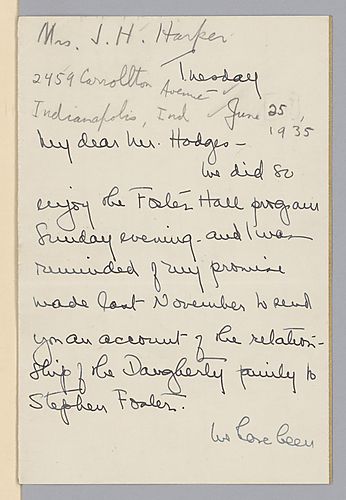 Mrs. J. H. Harper
Tuesday
2459 Carrollton Avenue
Indianapolis, Ind June 25, 1935
My dear Mr. Hodges -
We did so
enjoy the Foster Hall program
Sunday evening - and I was
reminded of my promise
made last November to send
you an account of the relation-
ship of the Daugherty family to
Stephen Foster.
We have been